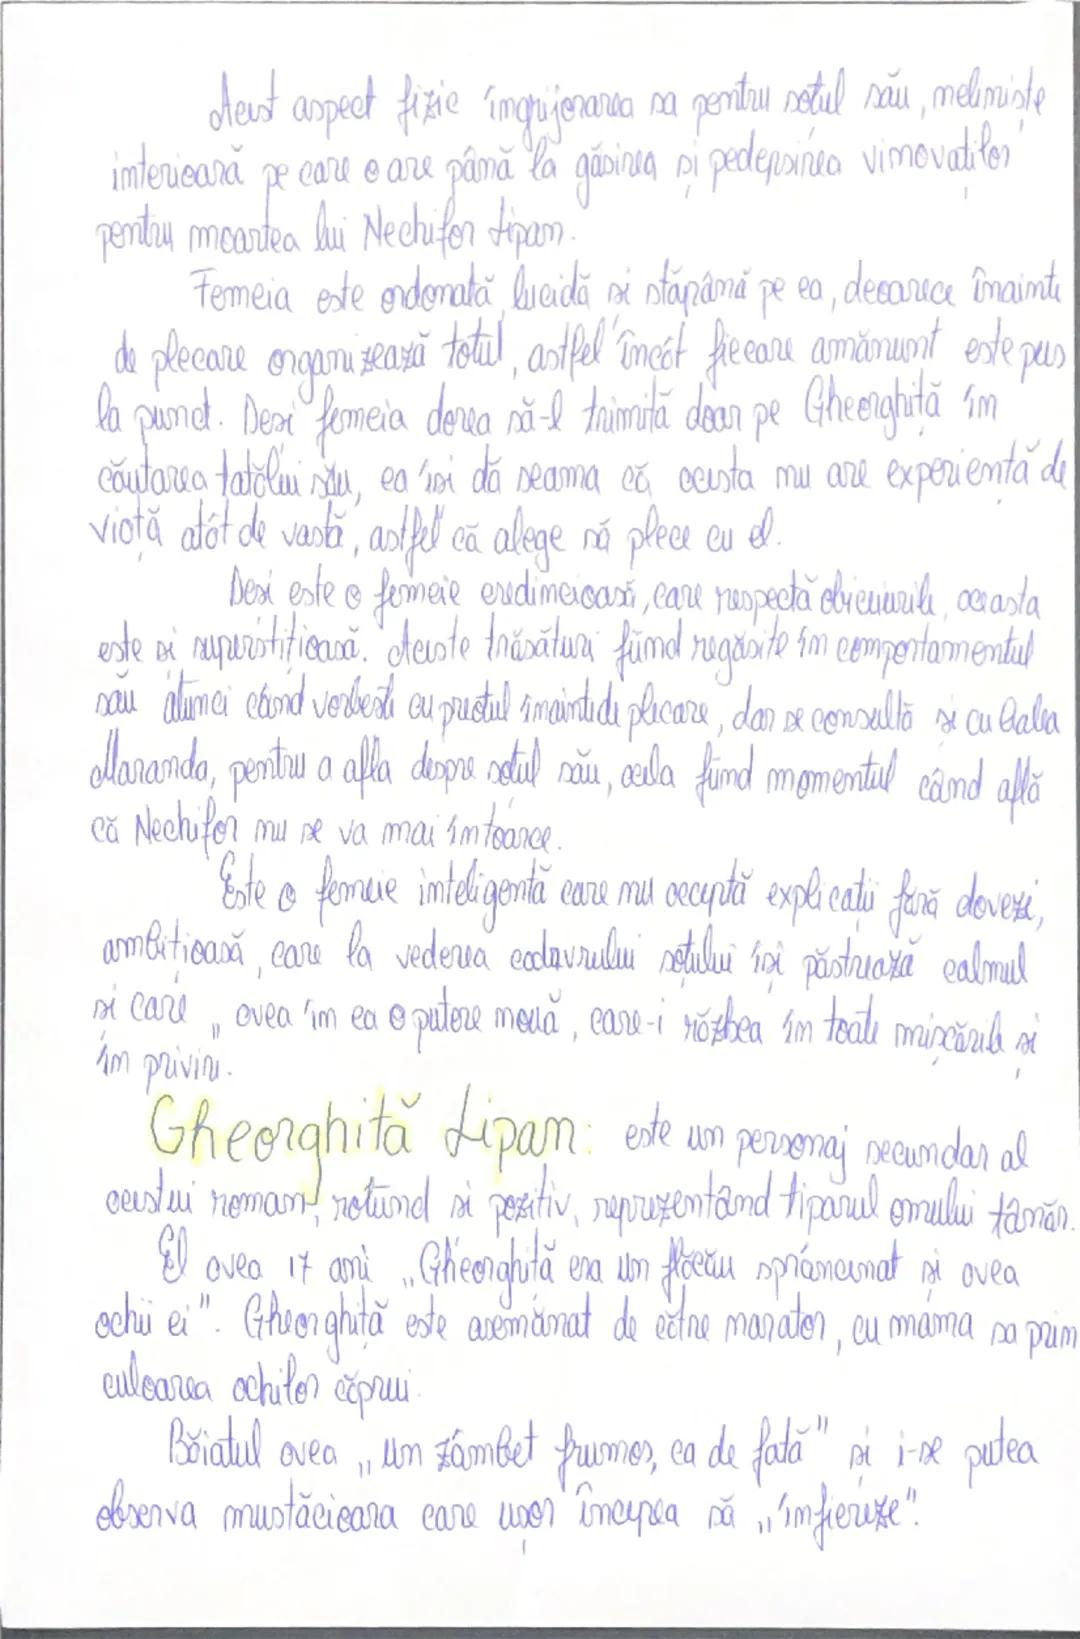 Acest aspect fizic îngrijorarea sa pentru soțul său, neliniște
interioară pe care o are până la găsirea și pedepsirea vinovaților
pentru moartea lui Nechifor Lipan.
Femeia este ordonată, lucidă și stăpână pe ea, deoarece înainte
de plecare organizează totul, astfel încât fiecare amănunt este pus
la punct. Deși femeia dorea să-l trimită doar pe Gheorghiță în
căutarea tatălui său, ea își dă seama că acesta nu are experiență de
viață atât de vastă, astfel că alege să plece cu el.
Deși este o femeie credincioasă, care respectă obiceiurile, aceasta
este și superstițioasă. Aceste trăsături fiind regăsite în comportamentul
său atunci când vorbește cu preotul înainte de plecare, dar se consultă și cu baba
Maranda, pentru a afla despre soțul său, acela fiind momentul când află
că Nechifor nu se va mai întoarce.
Este o femeie inteligentă care nu acceptă explicații fără dovezi,
ambițioasă, care la vederea cadavrului soțului își păstrează calmul
și care „avea în ea o putere nouă, care-i răzbea în toate mișcările și
în priviri.
Gheorghiță Lipan: este un personaj secundar al
acestui roman, rotund și pozitiv, reprezentând tiparul omului tânăr.
El avea 17 ani „Gheorghiță era un flăcău sprâncenat și avea
ochii ei". Gheorghiță este asemănat de către narator, cu mama sa prin
culoarea ochilor căprui.
Băiatul avea „un zâmbet frumos, ca de fată" și i-se putea
observa mustăcioara care ușor începea să „înfiereze".